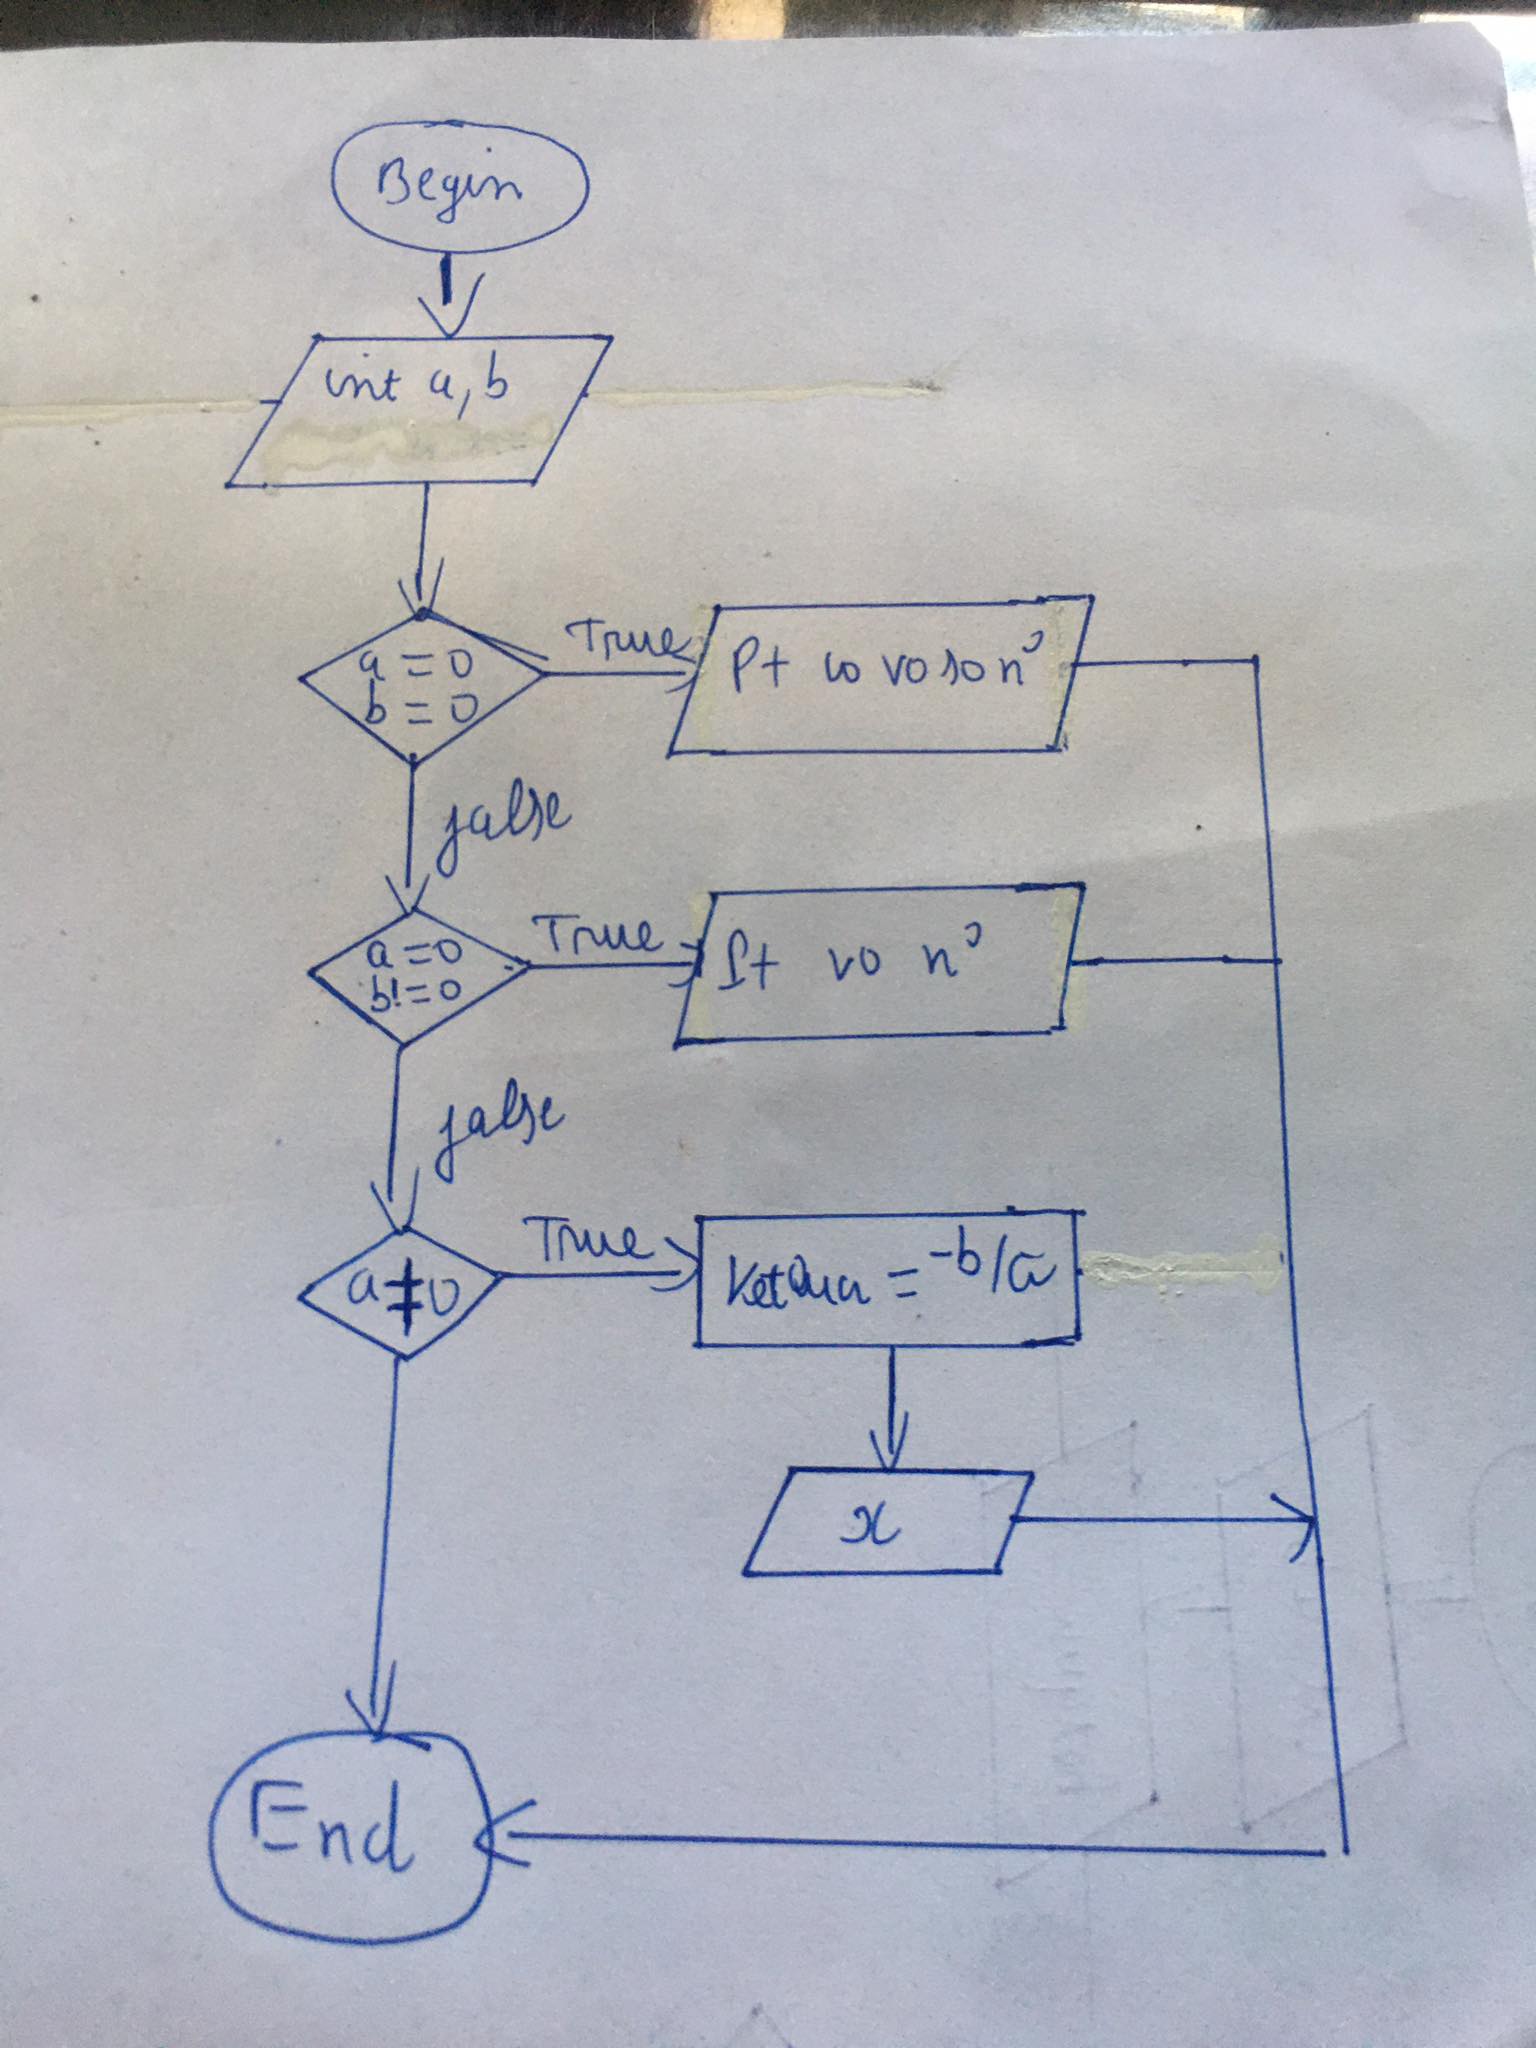 Begin
int a, b
a = 0
b = 0
True
Pt co vo so n°
false
a = 0
b! = 0
True
Pt vo n°
false
a ≠ 0
True
KetQua = -b/a
x
End